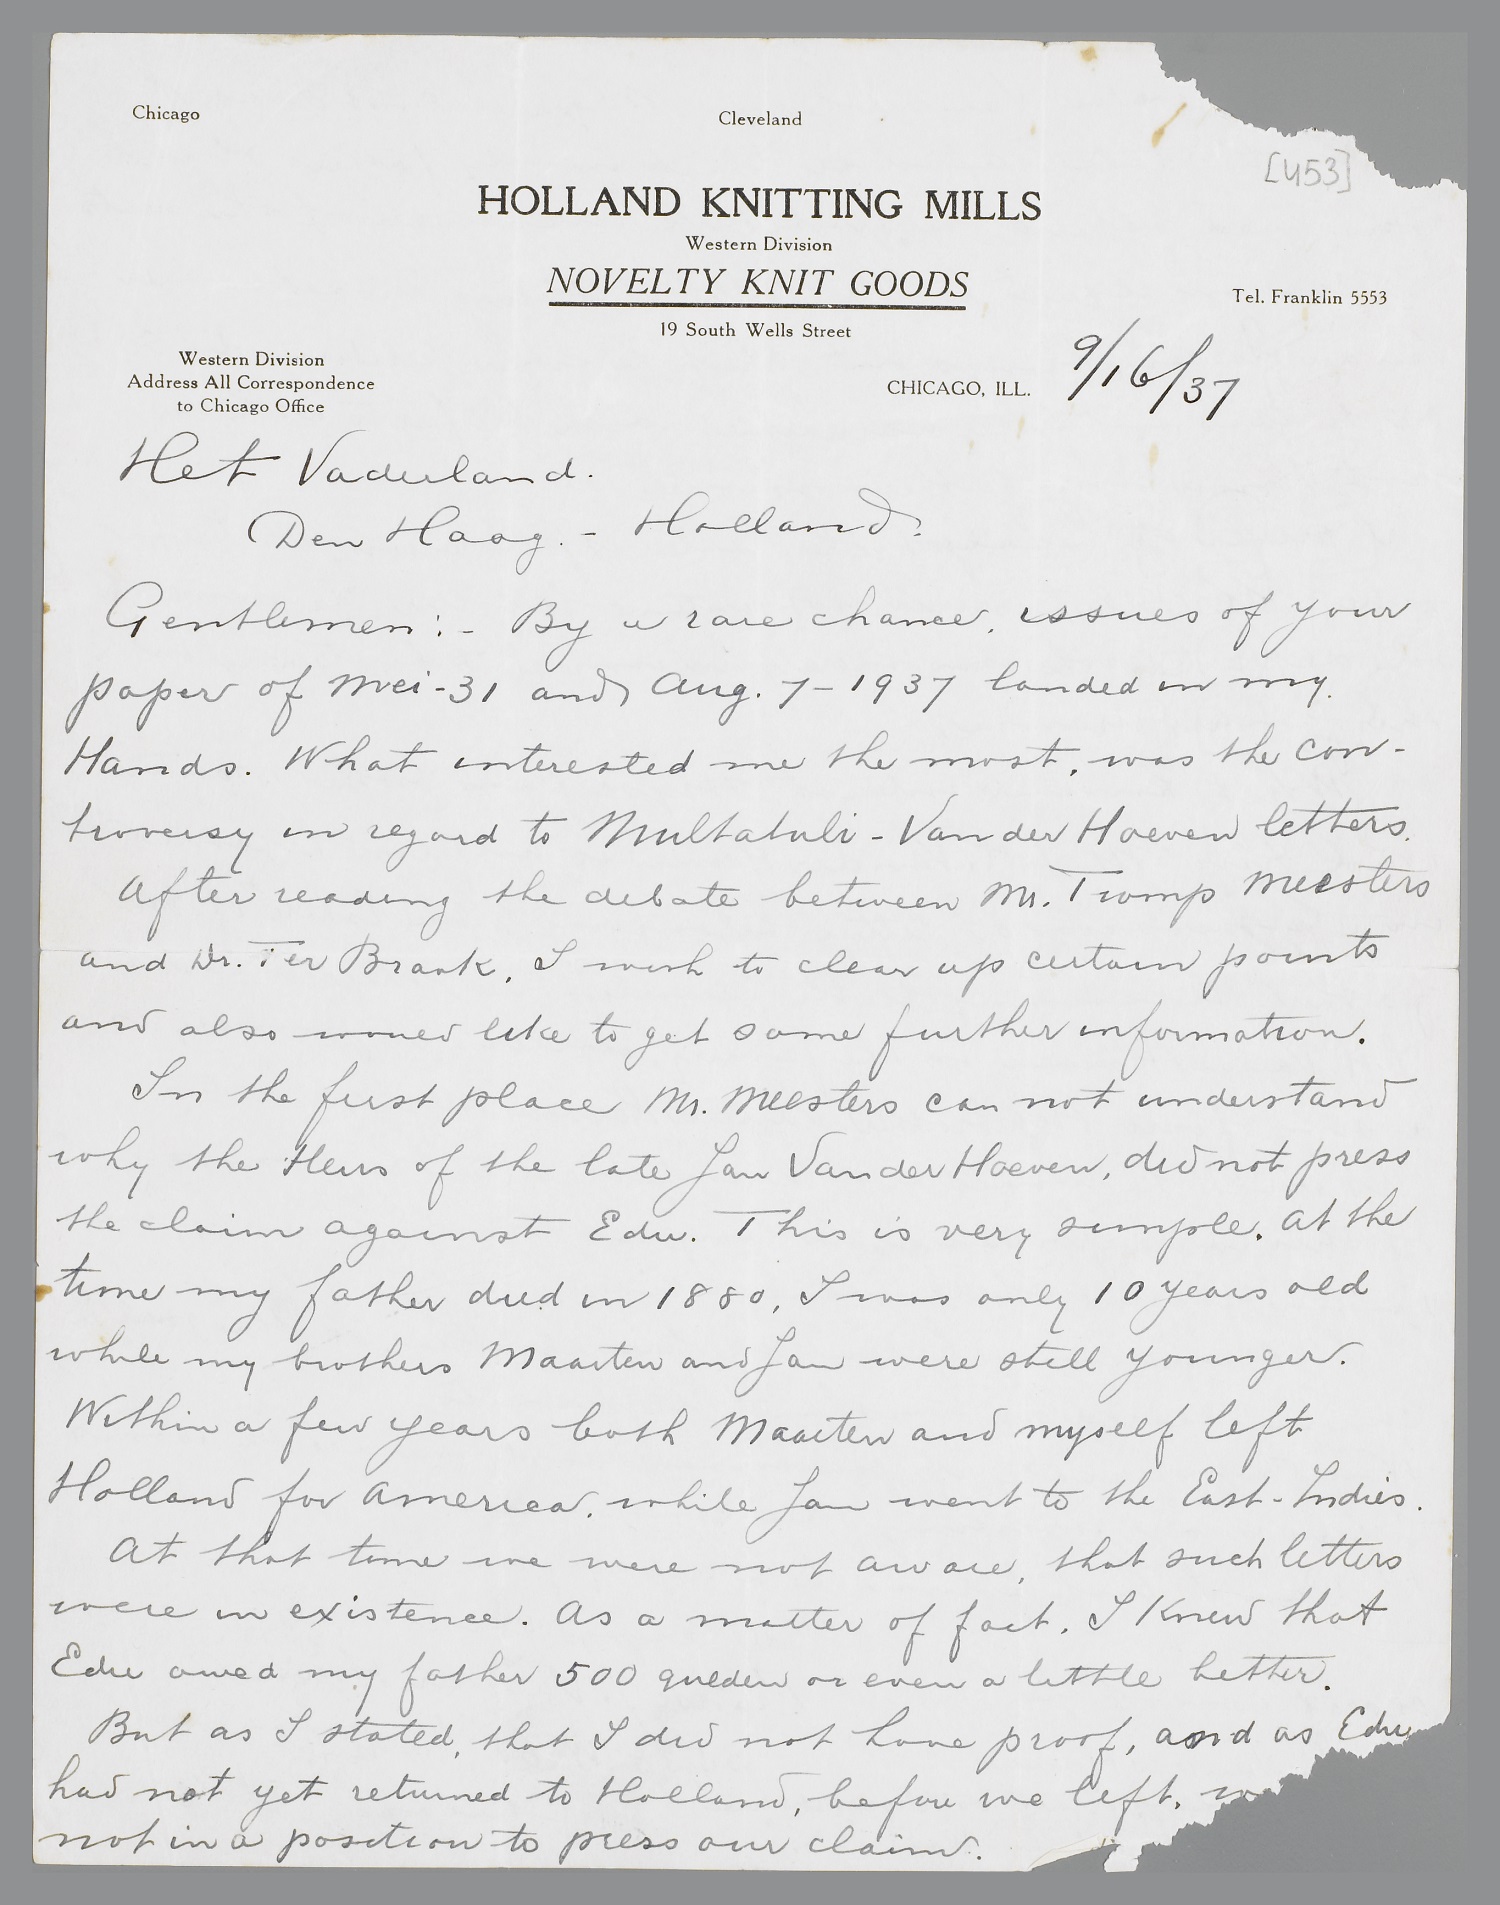 Chicago
Cleveland
[453]
HOLLAND KNITTING MILLS
Western Division
NOVELTY KNIT GOODS
Tel. Franklin 5553
19 South Wells Street
Western Division
Address All Correspondence
to Chicago Office
CHICAGO, ILL. 9/16/37
Het Vaderland.
Den Haag. - Holland.
Gentlemen:- By a rare chance, issues of your
paper of Mei-31 and Aug. 7-1937 landed in my
Hands. What interested me the most, was the con-
troversy in regard to Multatuli - Van der Hoeven letters.
After reading the debate between Mr. Tromp Meesters
and Dr. Ter Braak, I wish to clear up certain points
and also would like to get some further information.
In the first place Mr. Meesters can not understand
why the Heirs of the late Jan Van der Hoeven, did not press
the claim against Edu. This is very simple. At the
time my father died in 1880, I was only 10 years old
while my brothers Maarten and Jan were still younger.
Within a few years both Maarten and myself left
Holland for America, while Jan went to the East-Indies.
At that time we were not aware, that such letters
were in existence. As a matter of fact, I Knew that
Edu owed my father 500 gulden or even a little better.
But as I stated, that I did not have proof, and as Edu
had not yet returned to Holland, before we left,
not in a position to press our claim.